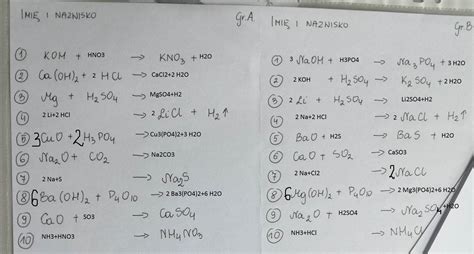 IMIĘ I NAZWISKO Gr.A
① KOH + HNO3 → KNO₃ + H2O
② Ca(OH)₂ + 2 HCl → CaCl2+2 H2O
③ Mg + H₂SO₄ → MgSO4+H2
④ 2 Li+2 HCl → 2 LiCl + H₂↑
⑤ 3CuO + 2H₃PO₄ → Cu3(PO4)2+3 H2O
⑥ Na₂O + CO₂ → Na2CO3
⑦ 2 Na+S → Na₂S
⑧ 6Ba(OH)₂ + P₄O₁₀ → 2 Ba3(PO4)2+6 H2O
⑨ CaO + SO3 → CaSO₄
⑩ NH3+HNO3 → NH₄NO₃
IMIĘ I NAZWISKO Gr.B
① 3 NaOH + H3PO4 → Na₃PO₄ + 3 H2O
② 2 KOH + H₂SO₄ → K₂SO₄ + 2 H2O
③ 2 Li + H₂SO₄ → Li2SO4+H2
④ 2 Na+2 HCl → 2 NaCl + H₂↑
⑤ BaO + H2S → BaS + H2O
⑥ CaO + SO₂ → CaSO3
⑦ 2 Na+Cl2 → 2NaCl
⑧ 6Mg(OH)₂ + P₄O₁₀ → 2 Mg3(PO4)2+6 H2O
⑨ Na₂O + H2SO4 → Na₂SO₄ +H2O
⑩ NH3+HCl → NH₄Cl